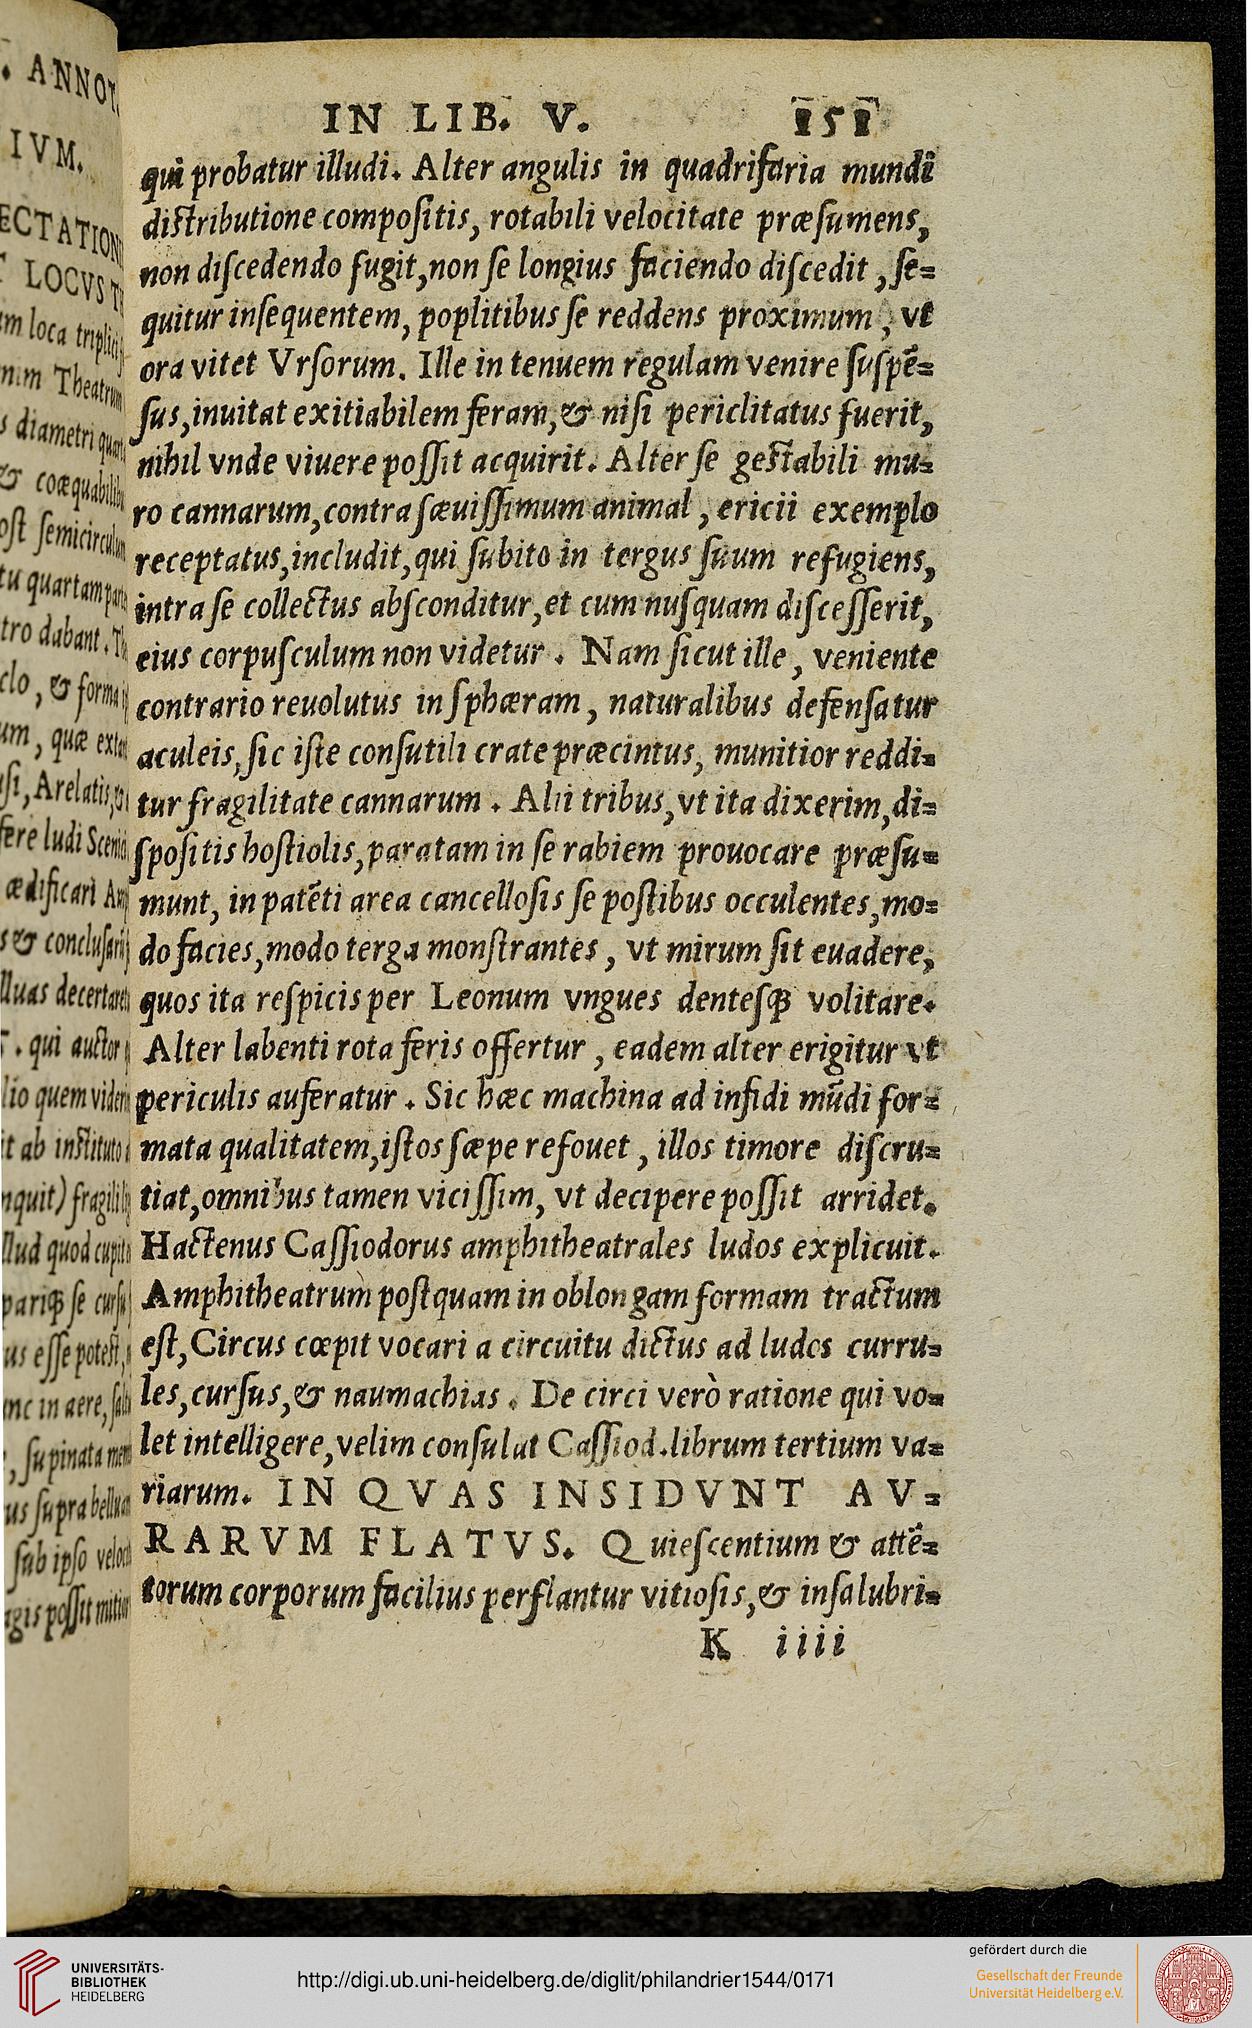 . ANNOT.
IVM.
ECTATION
LOCVS
loca
Theatrum
diametri
& coæquabili
semicirculum
quartam
dabant.
clo, & forma
um, quæ
Arelatis,
fere ludi
ædificari
& conclusa
lluas
. qui auctor
lio quem
it ab instituto
nquit)
llud quod
pariq; se
us esse potest,
nc in aere,
, supinata
us supra
sub ipso
possit
IN LIB. V. 151
qui probatur illudi. Alter angulis in quadrifaria mundi
distributione compositis, rotabili velocitate præsumens,
non discedendo fugit, non se longius faciendo discedit, se=
quitur insequentem, poplitibus se reddens proximum, vt
ora vitet Vrsorum. Ille in tenuem regulam venire suspē=
sus, inuitat exitiabilem feram, & nisi periclitatus fuerit,
nihil vnde viuere possit acquirit. Alter se gestabili mu=
ro cannarum, contra sæuissimum animal, ericii exemplo
receptatus, includit, qui subito in tergus suum refugiens,
intra se collectus absconditur, et cum nusquam discesserit,
eius corpusculum non videtur. Nam sicut ille, veniente
contrario reuolutus in sphæram, naturalibus defensatur
aculeis, sic iste consutili crate præcintus, munitior reddi=
tur fragilitate cannarum. Alii tribus, vt ita dixerim, di=
spositis hostiolis, paratam in se rabiem prouocare præsu=
munt, in patēti area cancellosis se postibus occulentes, mo=
do facies, modo terga monstrantes, vt mirum sit euadere,
quos ita respicis per Leonum vngues dentesq; volitare.
Alter labenti rota feris offertur, eadem alter erigitur vt
periculis auferatur. Sic hæc machina ad infidi mūdi for=
mata qualitatem, istos sæpe refouet, illos timore discru=
tiat, omnibus tamen vicissim, vt decipere possit arridet.
Hactenus Cassiodorus amphitheatrales ludos explicuit.
Amphitheatrum postquam in oblongam formam tractum
est, Circus cœpit vocari a circuitu dictus ad ludos curru=
les, cursus, & naumachias. De circi verò ratione qui vo=
let intelligere, velim consulat Cassiod. librum tertium va=
riarum. IN QVAS INSIDVNT AV=
RARVM FLATVS. Quiescentium & attē=
torum corporum facilius perflantur vitiosis, & insalubri=
K iiii
UNIVERSITÄTS-
BIBLIOTHEK
HEIDELBERG
http://digi.ub.uni-heidelberg.de/diglit/philandrier1544/0171
gefördert durch die
Gesellschaft der Freunde
Universität Heidelberg e.V.